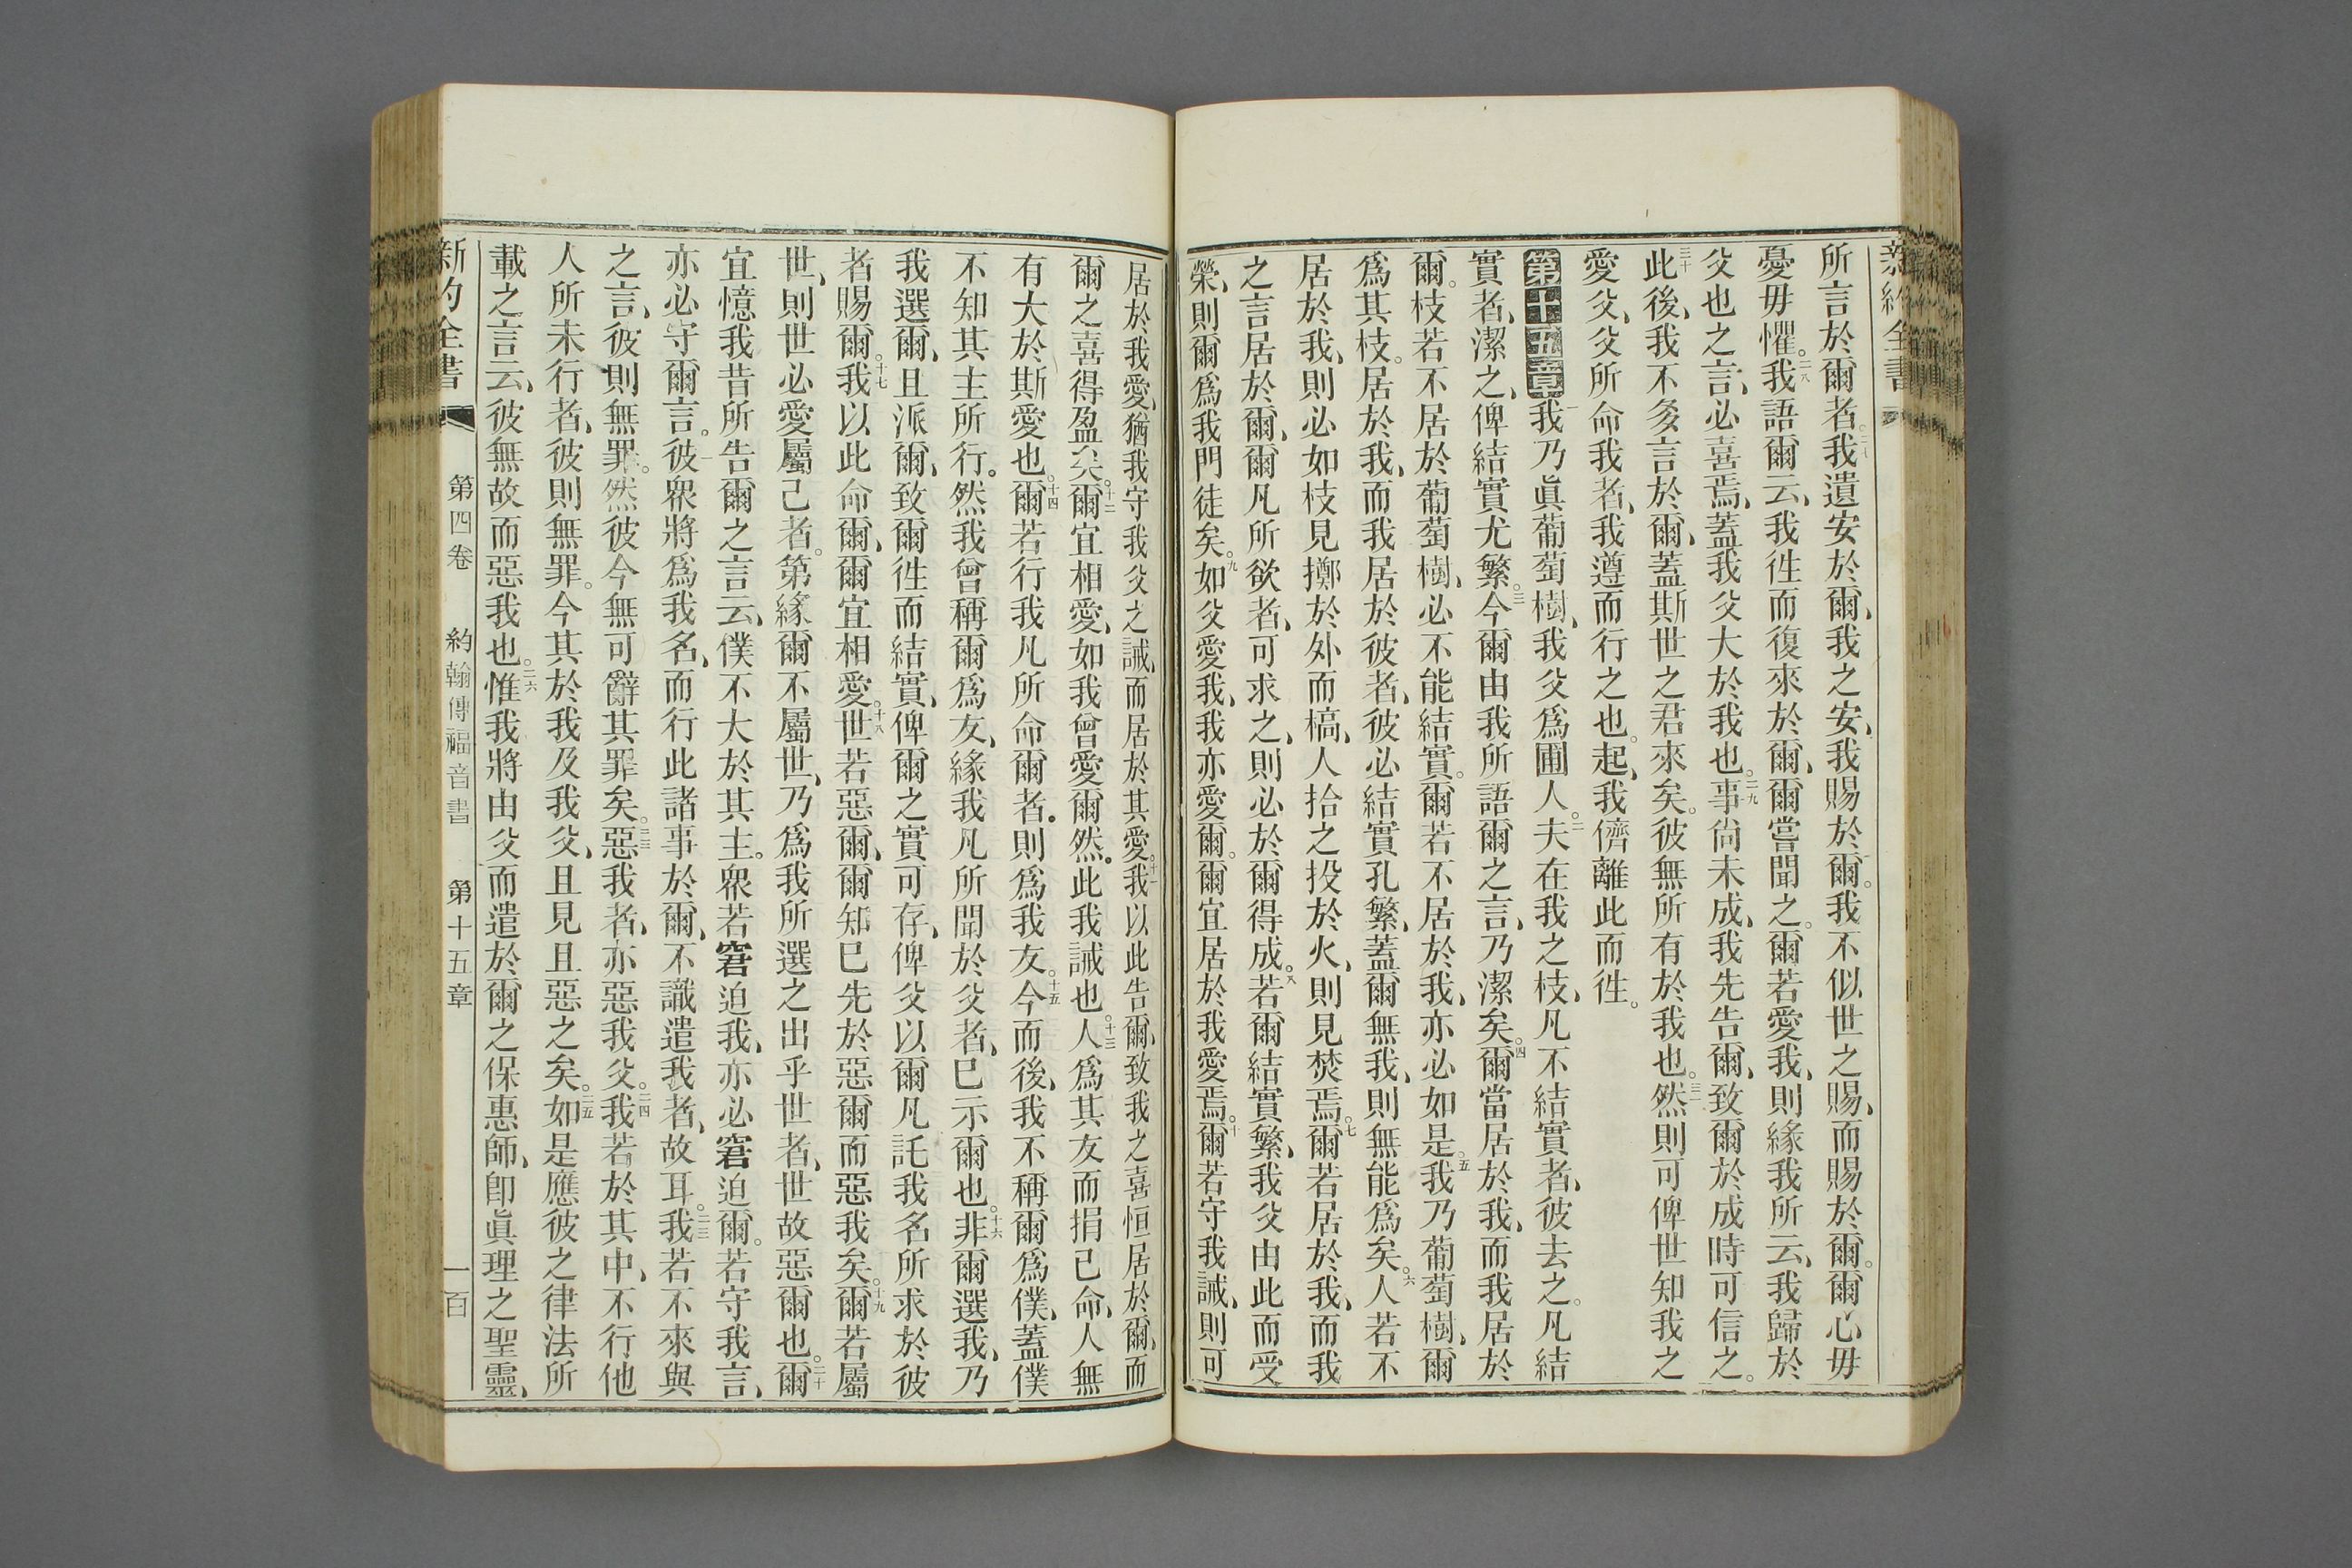 新約全書
所言於爾者。二七我遺安於爾、我之安、我賜於爾。我不似世之賜、而賜於爾。爾心毋
憂毋懼。二八我語爾云、我徃而復來於爾、爾嘗聞之。爾若愛我、則緣我所云、我歸於
父也之言、必喜焉、蓋我父大於我也。二九事尚未成、我先告爾、致爾於成時可信之。
三十此後、我不多言於爾、蓋斯世之君來矣。彼無所有於我也。三一然則可俾世知我之
愛父、父所命我者、我遵而行之也。起、我儕離此而徃。
第十五章一我乃眞葡萄樹、我父爲圃人。二夫在我之枝、凡不結實者、彼去之。凡結
實者、潔之、俾結實尤繁。三今爾由我所語爾之言、乃潔矣。四爾當居於我、而我居於
爾。枝若不居於葡萄樹、必不能結實。爾若不居於我、亦必如是。五我乃葡萄樹、爾
爲其枝。居於我、而我居於彼者、彼必結實孔繁、蓋爾無我、則無能爲矣。六人若不
居於我、則必如枝見擲於外而槁、人拾之投於火、則見焚焉。七爾若居於我、而我
之言居於爾、爾凡所欲者、可求之、則必於爾得成。八若爾結實繁、我父由此而受
榮、則爾爲我門徒矣。九如父愛我、我亦愛爾。爾宜居於我愛焉。十爾若守我誡、則可
居於我愛、猶我守我父之誡、而居於其愛。十一我以此告爾、致我之喜恒居於爾、而
爾之喜得盈矣。十二爾宜相愛、如我曾愛爾然。此我誡也。十三人爲其友而捐己命、人無
有大於斯愛也。十四爾若行我凡所命爾者、則爲我友。十五今而後、我不稱爾爲僕、蓋僕
不知其主所行。然我曾稱爾爲友、緣我凡所聞於父者、已示爾也。十六非爾選我、乃
我選爾、且派爾、致爾徃而結實、俾爾之實可存、俾父以爾凡託我名所求於彼
者賜爾。十七我以此命爾、爾宜相愛。十八世若惡爾、爾知已先於惡爾而惡我矣。十九爾若屬
世、則世必愛屬己者。第緣爾不屬世、乃爲我所選之出乎世者、世故惡爾也。二十爾
宜憶我昔所告爾之言云、僕不大於其主。衆若窘迫我、亦必窘迫爾。若守我言、
亦必守爾言。二一彼衆將爲我名、而行此諸事於爾、不識遣我者、故耳。二二我若不來與
之言、彼則無罪。然彼今無可辭其罪矣。二三惡我者、亦惡我父。二四我若於其中、不行他
人所未行者、彼則無罪。今其於我及我父、且見且惡之矣。二五如是應彼之律法所
載之言云、彼無故而惡我也。二六惟我將由父而遣於爾之保惠師、卽眞理之聖靈、
新約全書 第四卷 約翰傳福音書 第十五章 一百